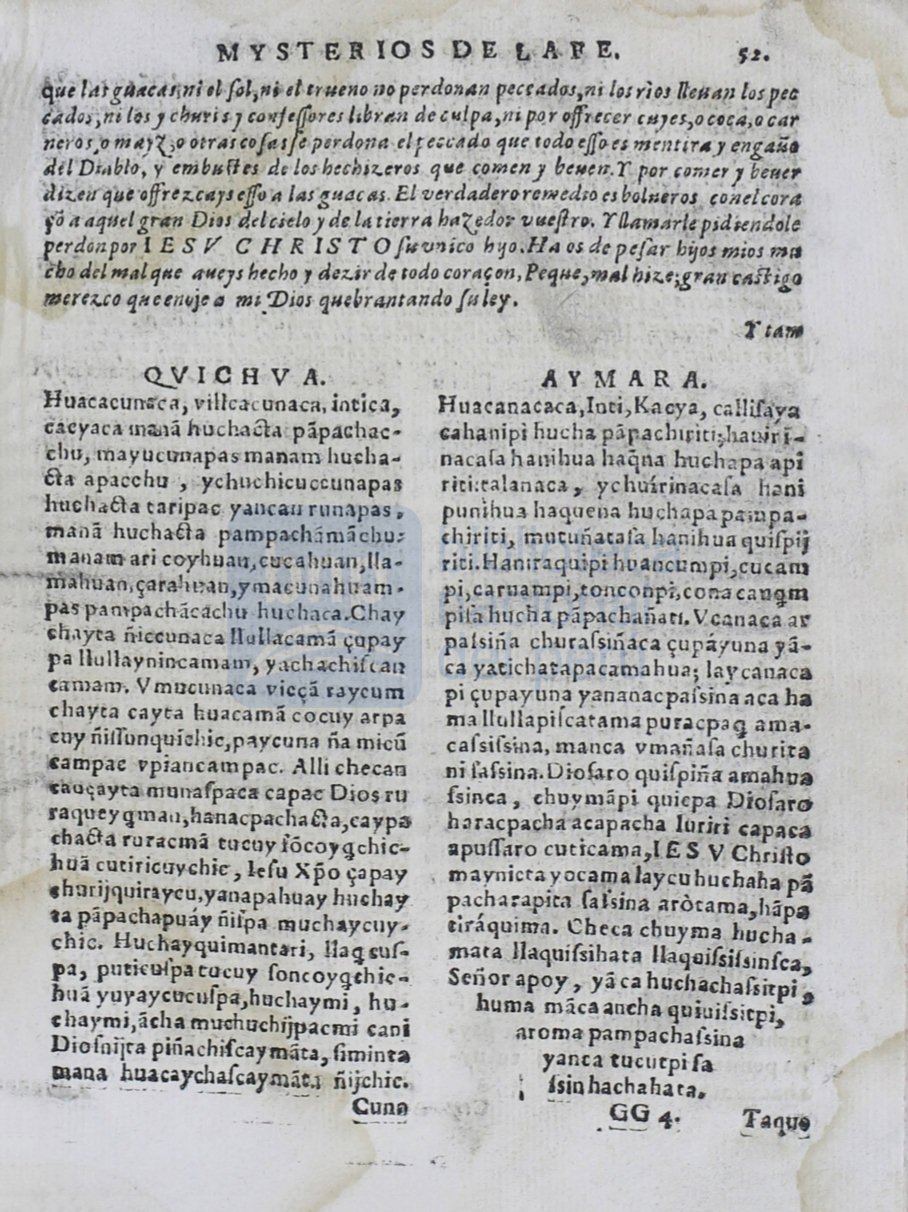 MYSTERIOS DE LA FE. 52.
que las guacas, ni el sol, ni el trueno no perdonan peccados, ni los rios lleuan los pec
cados, ni los ychuris y confessores libran de culpa, ni por offrecer cuyes, o coca, o car
neros, o mayz, o otras cosas se perdona el peccado que todo esso es mentira y engaño
del Diablo, y embustes de los hechizeros que comen y beuen. Y por comer y beuer
dizen que offrezcays esso a las guacas. El verdadero remedio es bolueros con el cora
çõ a aquel gran Dios del cielo y de la tierra hazedor vuestro. Y llamarle pidiendole
perdon por IESV CHRISTO su vnico hijo. Ha os de pesar hijos mios mu
cho del mal que aueys hecho y dezir de todo coraçon, Peque, mal hize, gran castigo
merezco que enoje a mi Dios quebrantando su ley.
Y tam
QVICHVA.
Huacacunaca, villcacunaca, intica,
cacyaca manã huchacta pãpachac-
chu, mayucunapas manam hucha-
cta apacchu, ychuchicuccunapas
huchacta taripac yancau runapas,
manã huchacta pampachãmãchu:
manam ari coyhuan, cucahuan, lla-
mahuan, çarahuan, ymacunahuam-
pas pampachãcachu huchaca. Chay
chayta ñiccunaca llullacamã çupay
pa llullaynincamam, yachachiscan
camam. Vmucunaca vicçã raycum
chayta cayta huacamã cocuy arpa
cuy ñissunquichic, paycuna ña micũ
campac vpiancampac. Alli checan
cauçayta munaspaca capac Dios ru
raqueyqman, hanacpachacta, caypa
chacta ruracmã tucuy sõcoyqchic-
huã cutiricuychic, Iesu Xp̃o çapay
churijquiraycu, yanapahuay huchay
ta pãpachapuáy ñispa muchaycuy-
chic. Huchayquimantari, llaq̃cus-
pa, puticuspa tucuy soncoyqchic-
huã yuyaycucuspa, huchaymi, hu-
chaymi, ãcha muchuchijpacmi cani
Diosnijta piñachiscaymãta, siminta
mana huacaychascaymãta ñijchic.
Cuna
AYMARA.
Huacanacaca, Inti, Kacya, callisaya
cahanipi hucha pãpachiriti, hauiri-
nacasa hanihua haq̃na huchapa api
riti: talanaca, ychuírinacasa hani
punihua haquena huchapa pampa-
chiriti, mutuñatasa hanihua quispij
riti. Haniraquipi huancumpi, cucam
pi, caruampi, tonconpi, cona cauqm
pisa hucha pãpachañati. Vcanaca ar
passiña churassiñaca çupáyuna yã-
ca yatichatapacamahua; laycanaca
pi çupayuna yananacpassina aca ha
ma llullapiscatama puracpaq ama-
cassissina, manca vmañasa churita
ni sassina. Diosaro quispiña amahua
ssinca, chuymãpi quicpa Diosaro
haracpacha acapacha luriri capaca
apussaro cuticama, IESV Christo
maynicta yocama laycu huchaha pã
pacharapita sassina aròtama, hãpa
tiráquima. Checa chuyma hucha-
mata llaquissihata llaquississinsca,
Señor apoy, yãca huchachassitpi,
huma mãca ancha quiuissitpi,
aroma pampachassina
yanca tucutpi sa
ssin hachahata.
GG 4. Taque